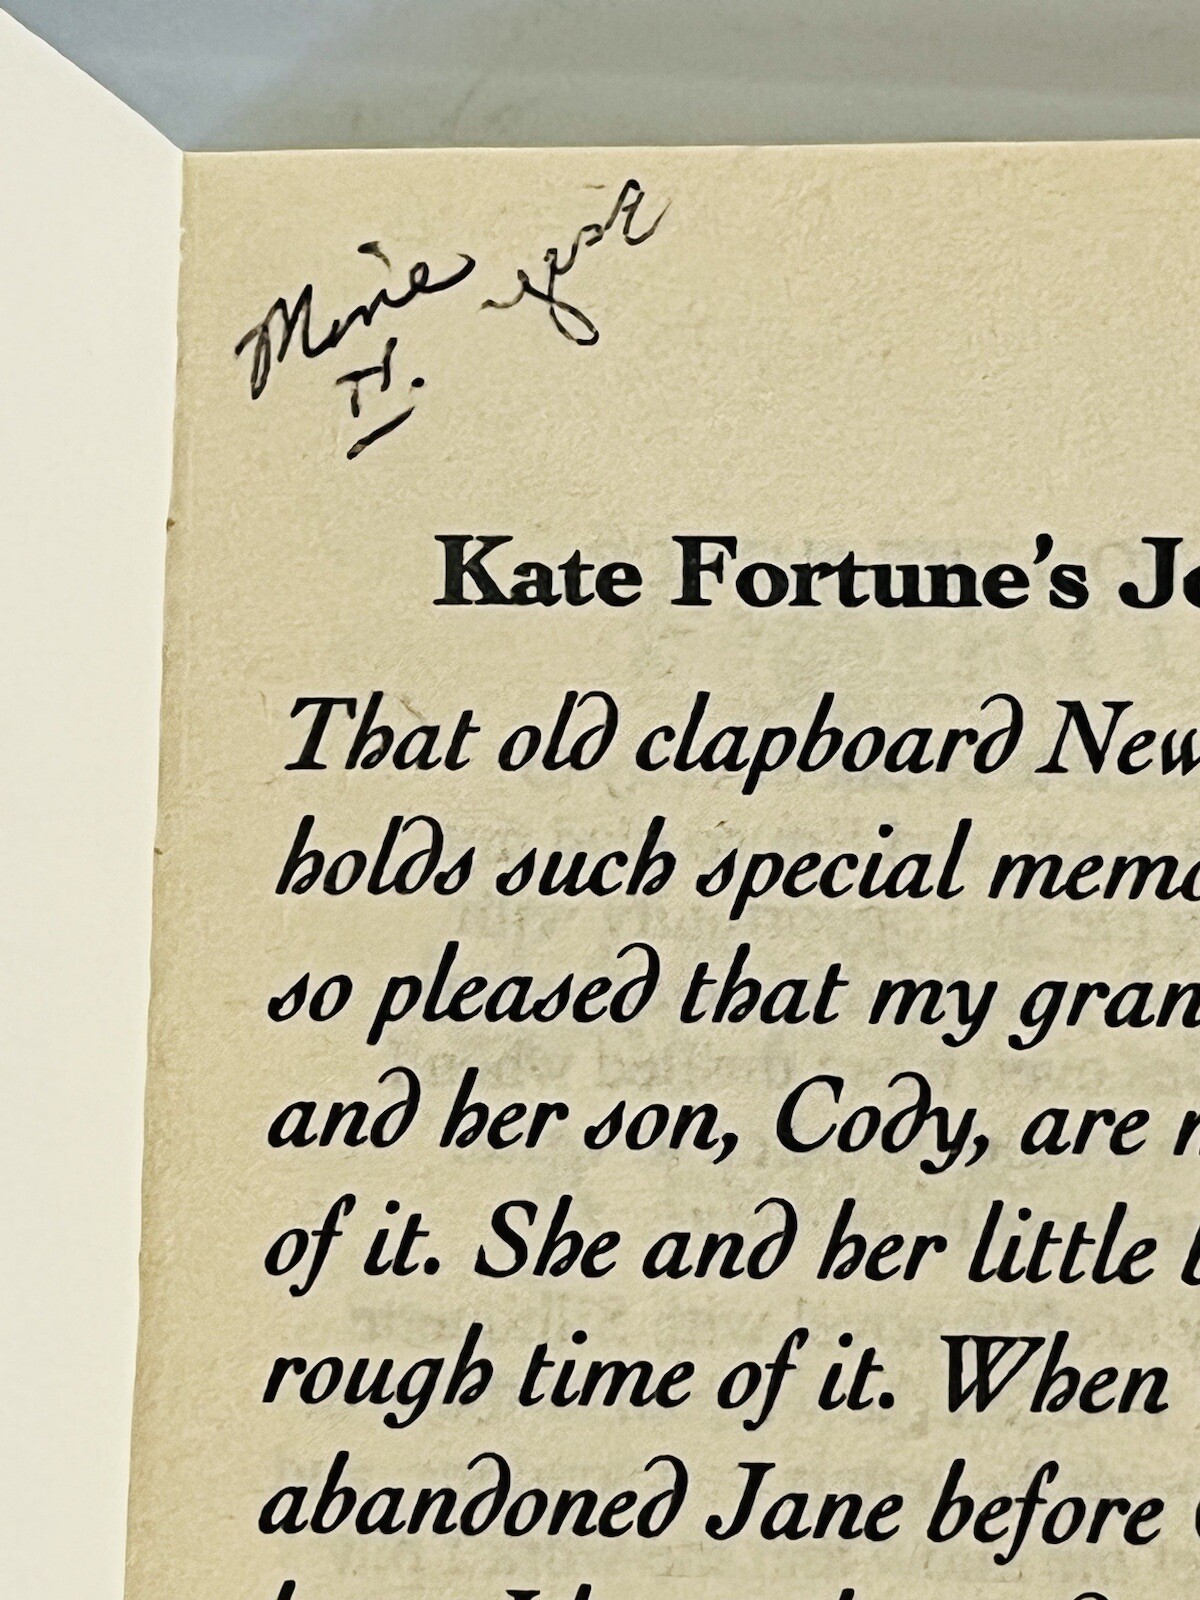 Marie yest
H.
Kate Fortune's Jo
That old clapboard New
holds such special memo
so pleased that my gran
and her son, Cody, are n
of it. She and her little b
rough time of it. When
abandoned Jane before